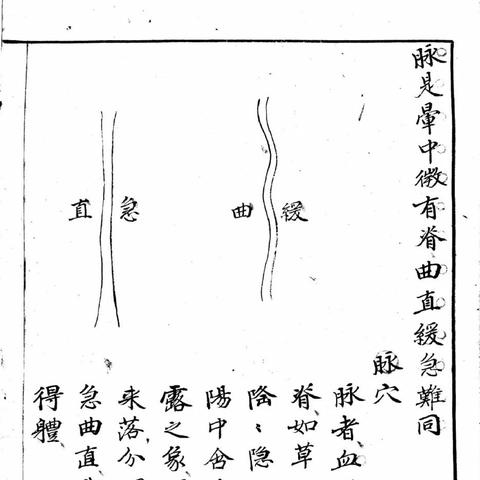 脉是暈中微有脊曲直緩急難同
緩
曲
急
直
脉穴
脉者血
脊如草
陰隐
陽中含
露之象
来落分
急曲直
得體